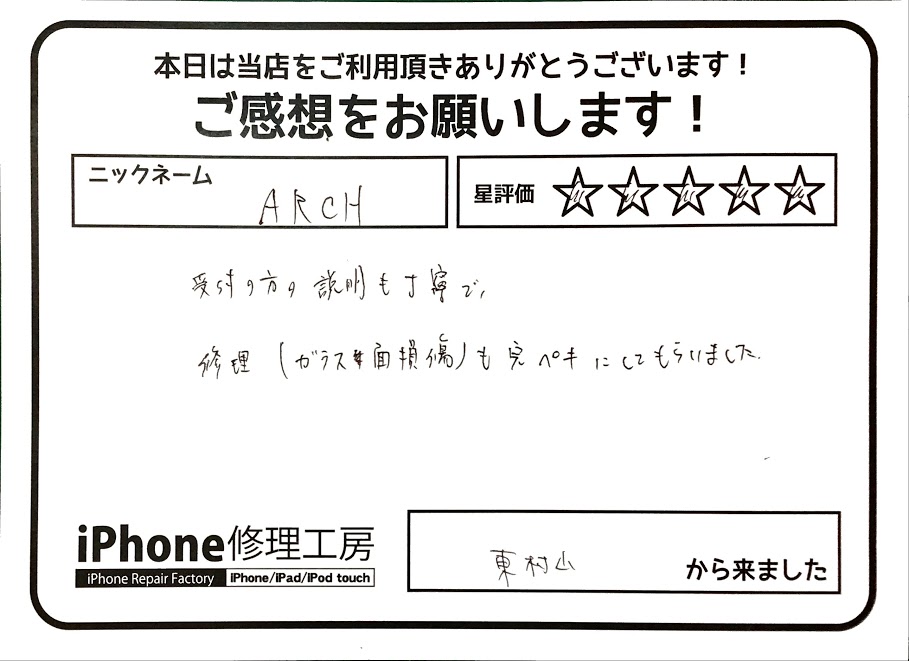 本日は当店をご利用頂きありがとうございます！
ご感想をお願いします！
ニックネーム
ARCH
星評価 ☆☆☆☆☆
受付の方の説明も丁寧で、
修理（ガラス面損傷）も完ペキにしてもらいました。
iPhone修理工房
iPhone Repair Factory iPhone/iPad/iPod touch
東村山 から来ました